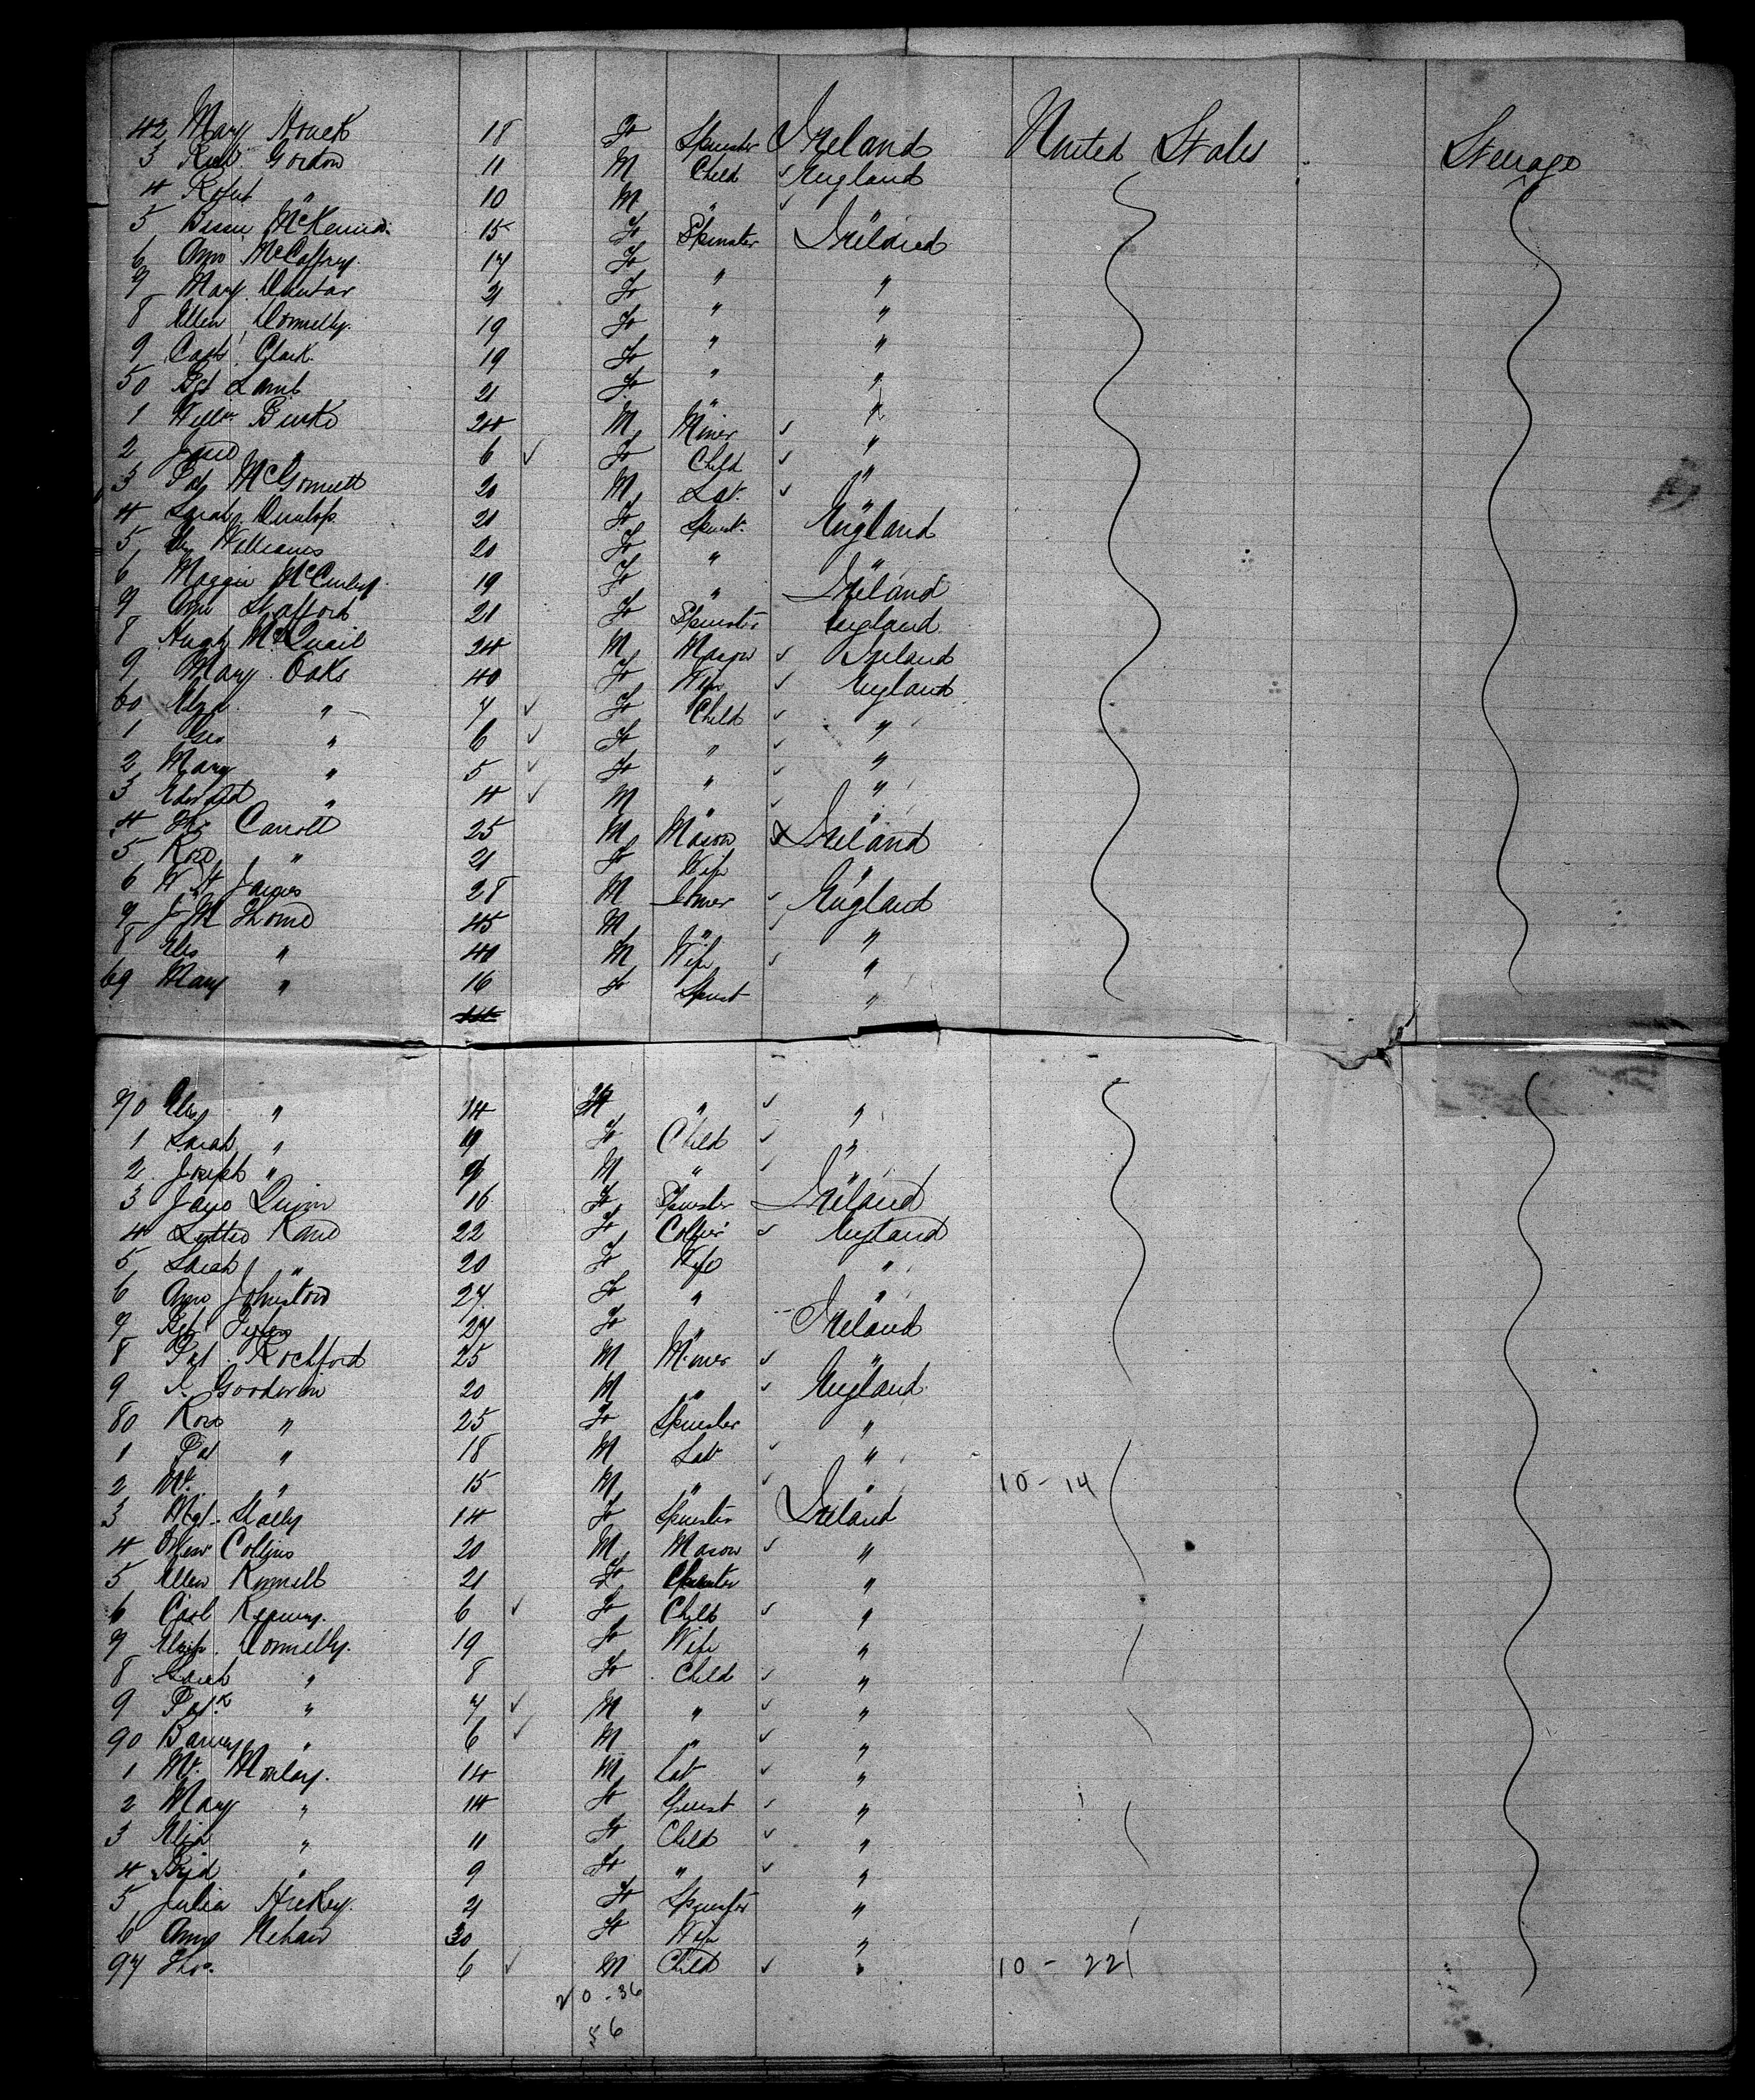 42 Mary Houek 18 F Spinster Ireland United States Steerage
3 Richd Gordon 11 M Child England
4 Robt " 10 M " "
5 Bessie McKenna 15 F Spinster Ireland
6 Ann McCaffrey 17 F " "
7 Mary 21 F " "
8 Ellen Donnelly 19 F " "
9 Cath Clark 19 F " "
50 Bgt Lamb 21 F " "
1 Willm Burke 24 M Miner "
2 Jane " 6 F Child "
3 Pat 20 M Lab. "
4 Sarah Dunlop 21 F Spinst. England
5 Williams 20 F " "
6 Maggie 19 F " Ireland
7 Ann Stafford 21 F Spinster England
8 Hugh McQuail 24 M Mason Ireland
9 Mary Oaks 40 F Wife England
60 Eliza " 7 F Child "
1 Geo " 6 F " "
2 Mary " 5 F " "
3 Edward " 4 M " "
4 Ths Carroll 25 M Mason Ireland
5 Rose " 21 F Wife "
6 W H James 28 M England
7 J M Thome 45 M " "
8 Elis " 40 M Wife "
69 Mary " 16 F Spinst "
70 " 14 " "
1 Sarah " F Child "
2 Joseph " M " "
3 Jane Quinn 16 F Spinster Ireland
4 Kane 22 F Collier England
5 Sarah " 20 F Wife "
6 Ann Johnston 27 F " "
7 27 F " Ireland
8 Pat Rochford 25 M Miner "
9 Goodwin 20 M " England
80 Rose " 25 F Spinster "
1 Pat " 18 M Lab "
2 " 15 M " " 10 - 14
3 Mgt. 14 F Spinster Ireland
4 Collins 20 M Mason "
5 Ellen 21 F Spinster "
6 6 F Child "
7 Donnelly 19 F Wife "
8 Sarah " 8 F Child "
9 Patk " 7 M " "
90 Barney " 6 M " "
1 14 M Lab "
2 Mary " 14 F Spinst "
3 Eliza " 11 F Child "
4 Brid " 9 F " "
5 Julia Hickey 21 F Spinster "
6 Ann 30 F Wife "
97 Thos. 6 M Child " 10 - 22
20 - 36
56